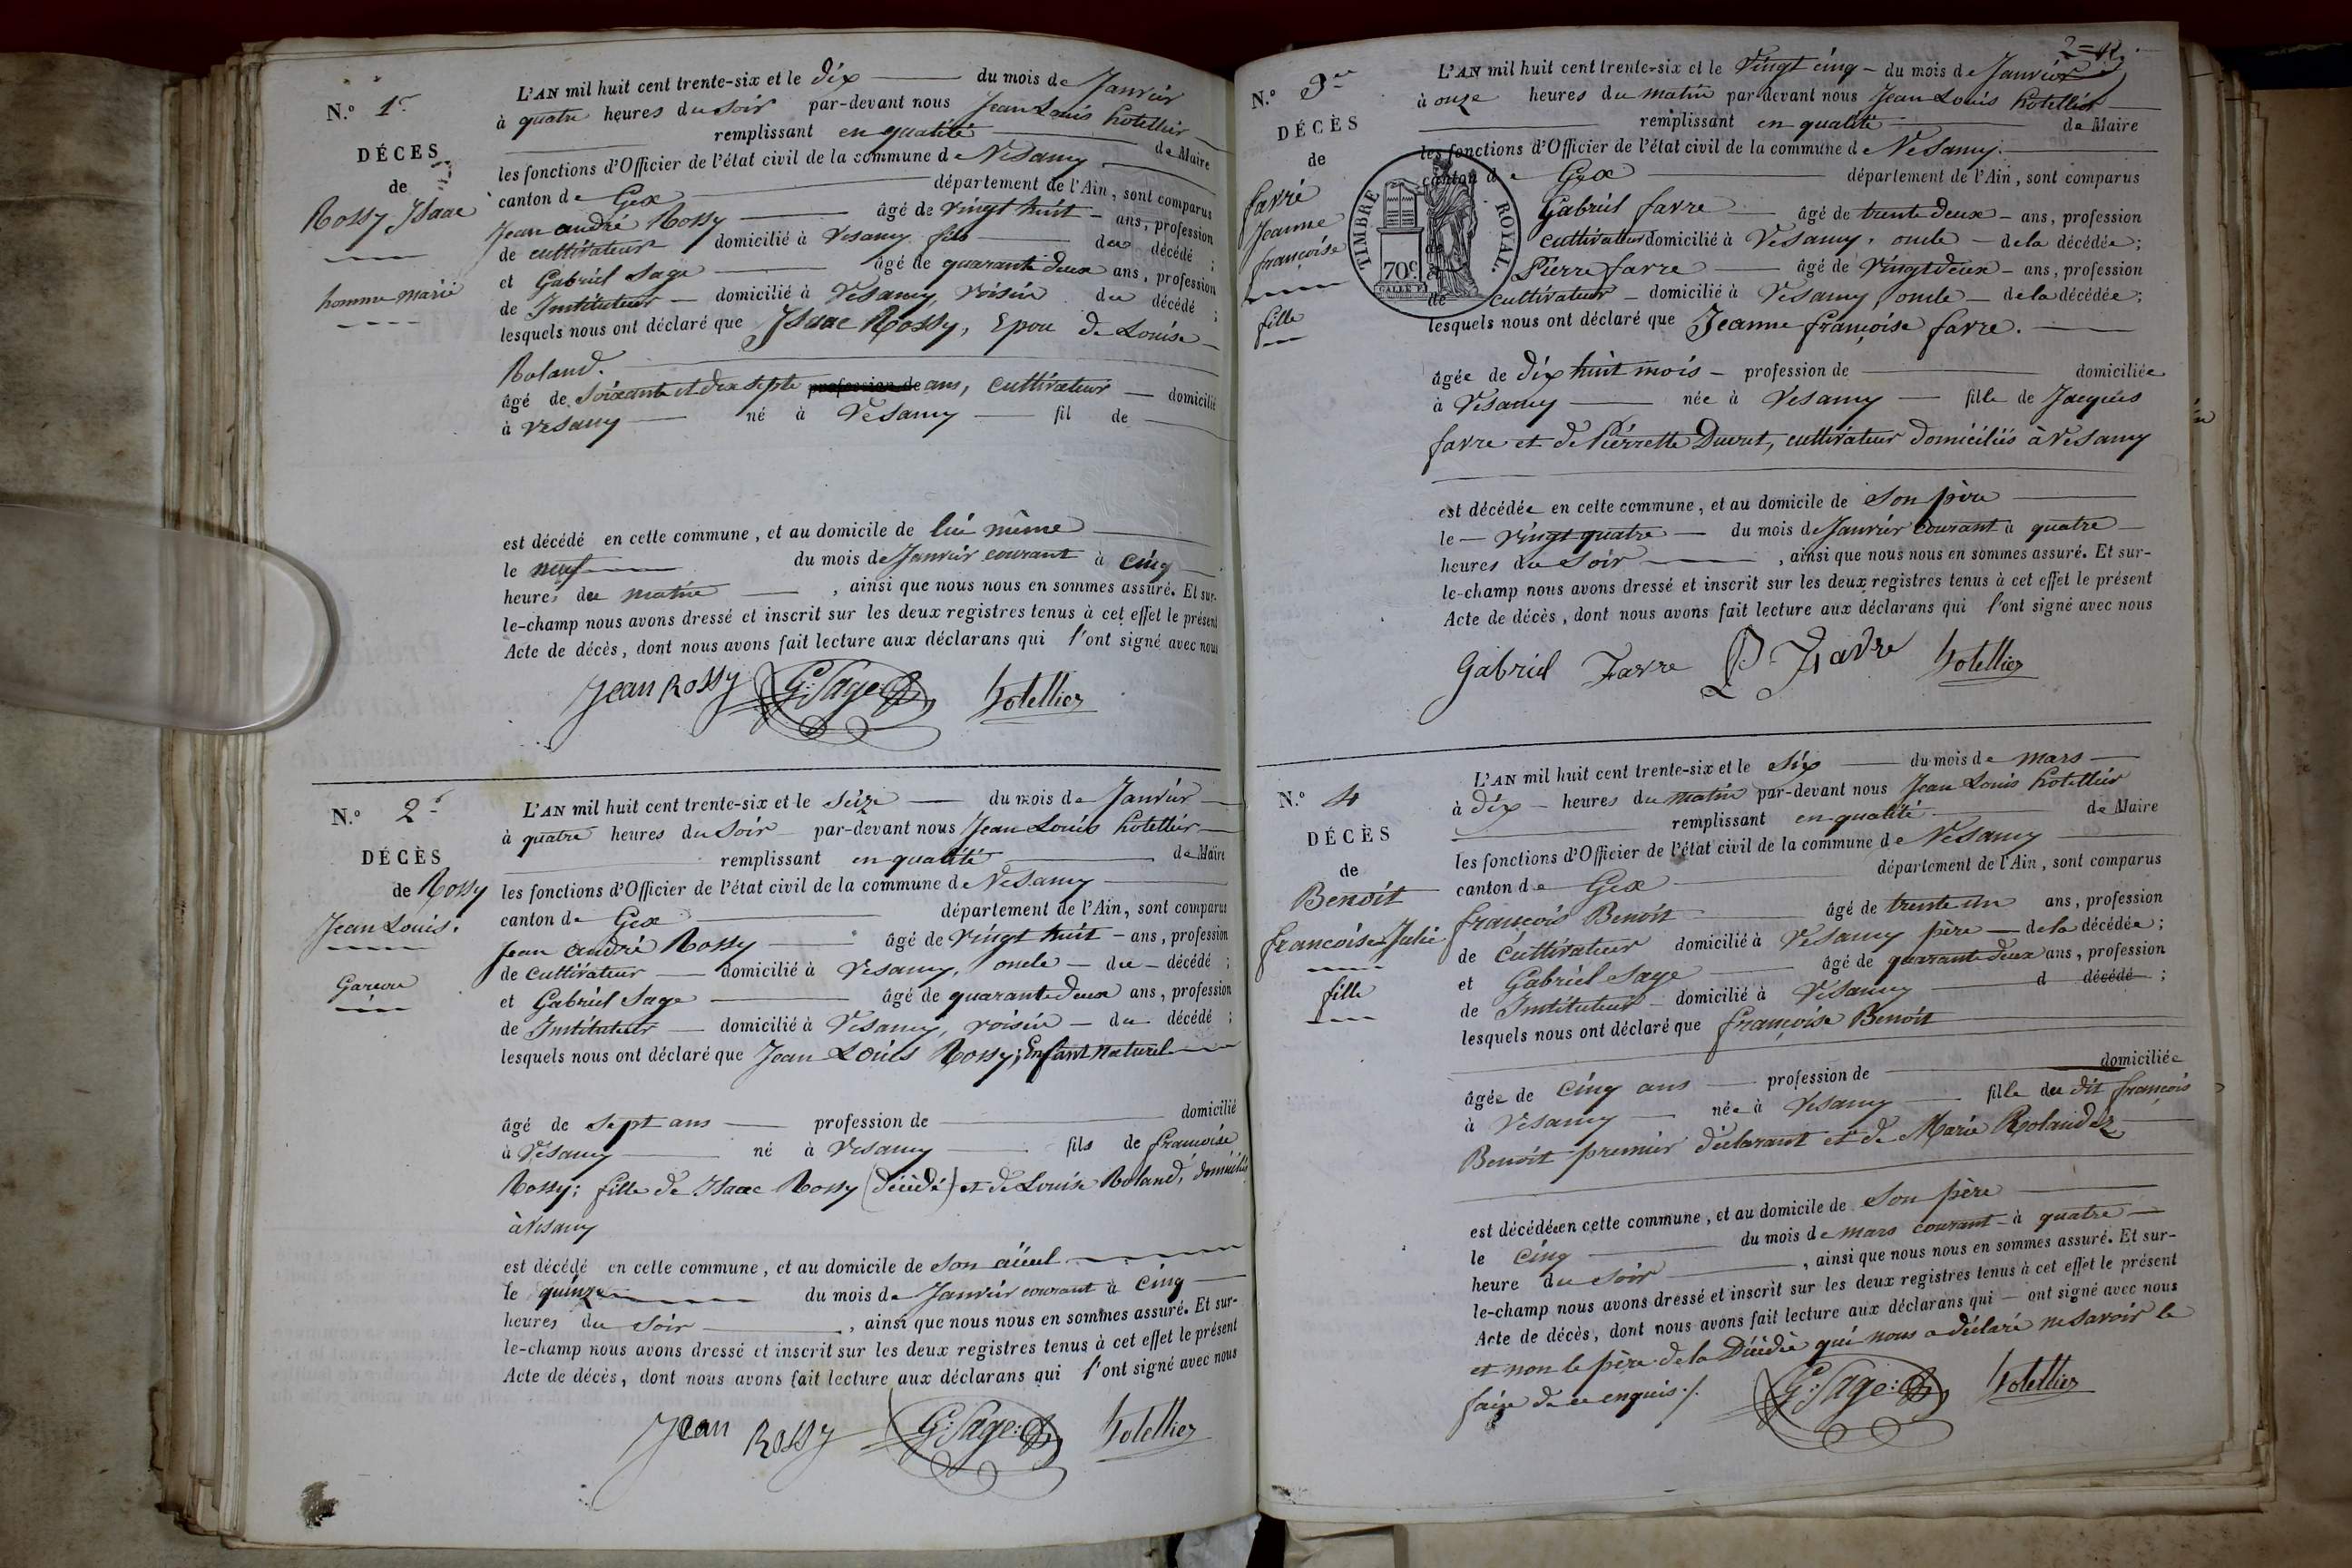 N.o 1.r
DÉCES
de
Rossy Isaac
homme marié
L'AN mil huit cent trente-six et le dix du mois de Janvier
à quatre heures du soir par-devant nous Jean Louis hotellier
remplissant en qualité de Maire
les fonctions d'Officier de l'état civil de la commune de Vesancy
canton de Gex département de l'Ain, sont comparus
Jean andré Rossy âgé de vingt huit ans, profession
de cultivateur domicilié à Vesancy fils du décédé ;
et Gabriel Sage âgé de quarante deux ans, profession
de Instituteur domicilié à Vesancy, voisin du décédé ;
lesquels nous ont déclaré que Isaac Rossy, Epou de Louise
Roland.
âgé de soixante et dix septe profession de ans, cultivateur domicilié
à Vesancy né à Vesancy fil de
est décédé en cette commune, et au domicile de lui même
le neuf du mois de Janvier courant à cinq
heures du matin , ainsi que nous nous en sommes assuré. Et sur-
le-champ nous avons dressé et inscrit sur les deux registres tenus à cet effet le présent
Acte de décès, dont nous avons fait lecture aux déclarans qui l'ont signé avec nous
Jean Rossy G: Sage: hotellier
N.o 2.d
DÉCÈS
de Rossy
Jean Louis.
Garcon
L'AN mil huit cent trente-six et le Seize du mois de Janvier
à quatre heures du soir par-devant nous Jean Louis hotellier
remplissant en qualité de Maire
les fonctions d'Officier de l'état civil de la commune de Vesancy
canton de Gex département de l'Ain, sont comparus
Jean andré Rossy âgé de vingt huit ans, profession
de cultivateur domicilié à Vesancy, oncle du décédé ;
et Gabriel Sage âgé de quarante deux ans, profession
de Instituteur domicilié à Vesancy, voisin du décédé ;
lesquels nous ont déclaré que Jean Louis Rossy; Enfant naturel
âgé de sept ans profession de domicilié
à Vesancy né à Vesancy fils de françoise
Rossy; fille de Isaac Rossy (décédé) et de Louise Roland, domiciliés
à Vesancy
est décédé en cette commune, et au domicile de son aïeul
le quinze du mois de Janvier courant à cinq
heures du soir , ainsi que nous nous en sommes assuré. Et sur-
le-champ nous avons dressé et inscrit sur les deux registres tenus à cet effet le présent
Acte de décès, dont nous avons fait lecture aux déclarans qui l'ont signé avec nous
Jean Rossy G: Sage: hotellier
N.o 3.me
DÉCÈS
de
favre
Jeanne
françoise
fille
TIMBRE ROYAL.
70c
L'AN mil huit cent trente-six et le Vingt cinq du mois de Janvier
à onze heures du matin par devant nous Jean Louis hotellier
remplissant en qualité de Maire
les fonctions d'Officier de l'état civil de la commune de Vesancy.
canton de Gex département de l'Ain, sont comparus
Gabriel favre âgé de trente deux ans, profession
de cultivateur domicilié à Vesancy, oncle de la décédée ;
et Pierre favre âgé de vingt deux ans, profession
de cultivateur domicilié à Vesancy, oncle de la décédée ;
lesquels nous ont déclaré que Jeanne françoise favre.
âgée de dix huit mois profession de domiciliée
à Vesancy née à Vesancy fille de Jacques
favre et de Pierrette Duvut, cultivateur domiciliés à Vesancy
est décédée en cette commune, et au domicile de Son père
le vingt quatre du mois de Janvier courant à quatre
heures du Soir , ainsi que nous nous en sommes assuré. Et sur-
le-champ nous avons dressé et inscrit sur les deux registres tenus à cet effet le présent
Acte de décès, dont nous avons fait lecture aux déclarans qui l'ont signé avec nous
Gabriel Favre P. Favre hotellier
N.o 4
DÉCÈS
de
Benoit
francoise Julie
fille
L'AN mil huit cent trente-six et le Six du mois de mars
à dix heures du matin par-devant nous Jean Louis hotellier
remplissant en qualité de Maire
les fonctions d'Officier de l'état civil de la commune de Vesancy
canton de Gex département de l'Ain, sont comparus
françois Benoit âgé de trente un ans, profession
de cultivateur domicilié à Vesancy père de la décédée ;
et Gabriel Sage âgé de quarante deux ans, profession
de Instituteur domicilié à Vesancy d décédé ;
lesquels nous ont déclaré que françoise Benoit
âgée de cinq ans profession de domiciliée
à Vesancy née à Vesancy fille du dit françois
Benoit premier déclarant et de Marie Rolandez
est décédée en cette commune, et au domicile de Son père
le cinq du mois de mars courant à quatre
heure du soir , ainsi que nous nous en sommes assuré. Et sur-
le-champ nous avons dressé et inscrit sur les deux registres tenus à cet effet le présent
Acte de décès, dont nous avons fait lecture aux déclarans qui ont signé avec nous
et non le père de la Décédée qui nous a déclaré ne savoir le
faire de ce enquis./.
G: Sage: hotellier